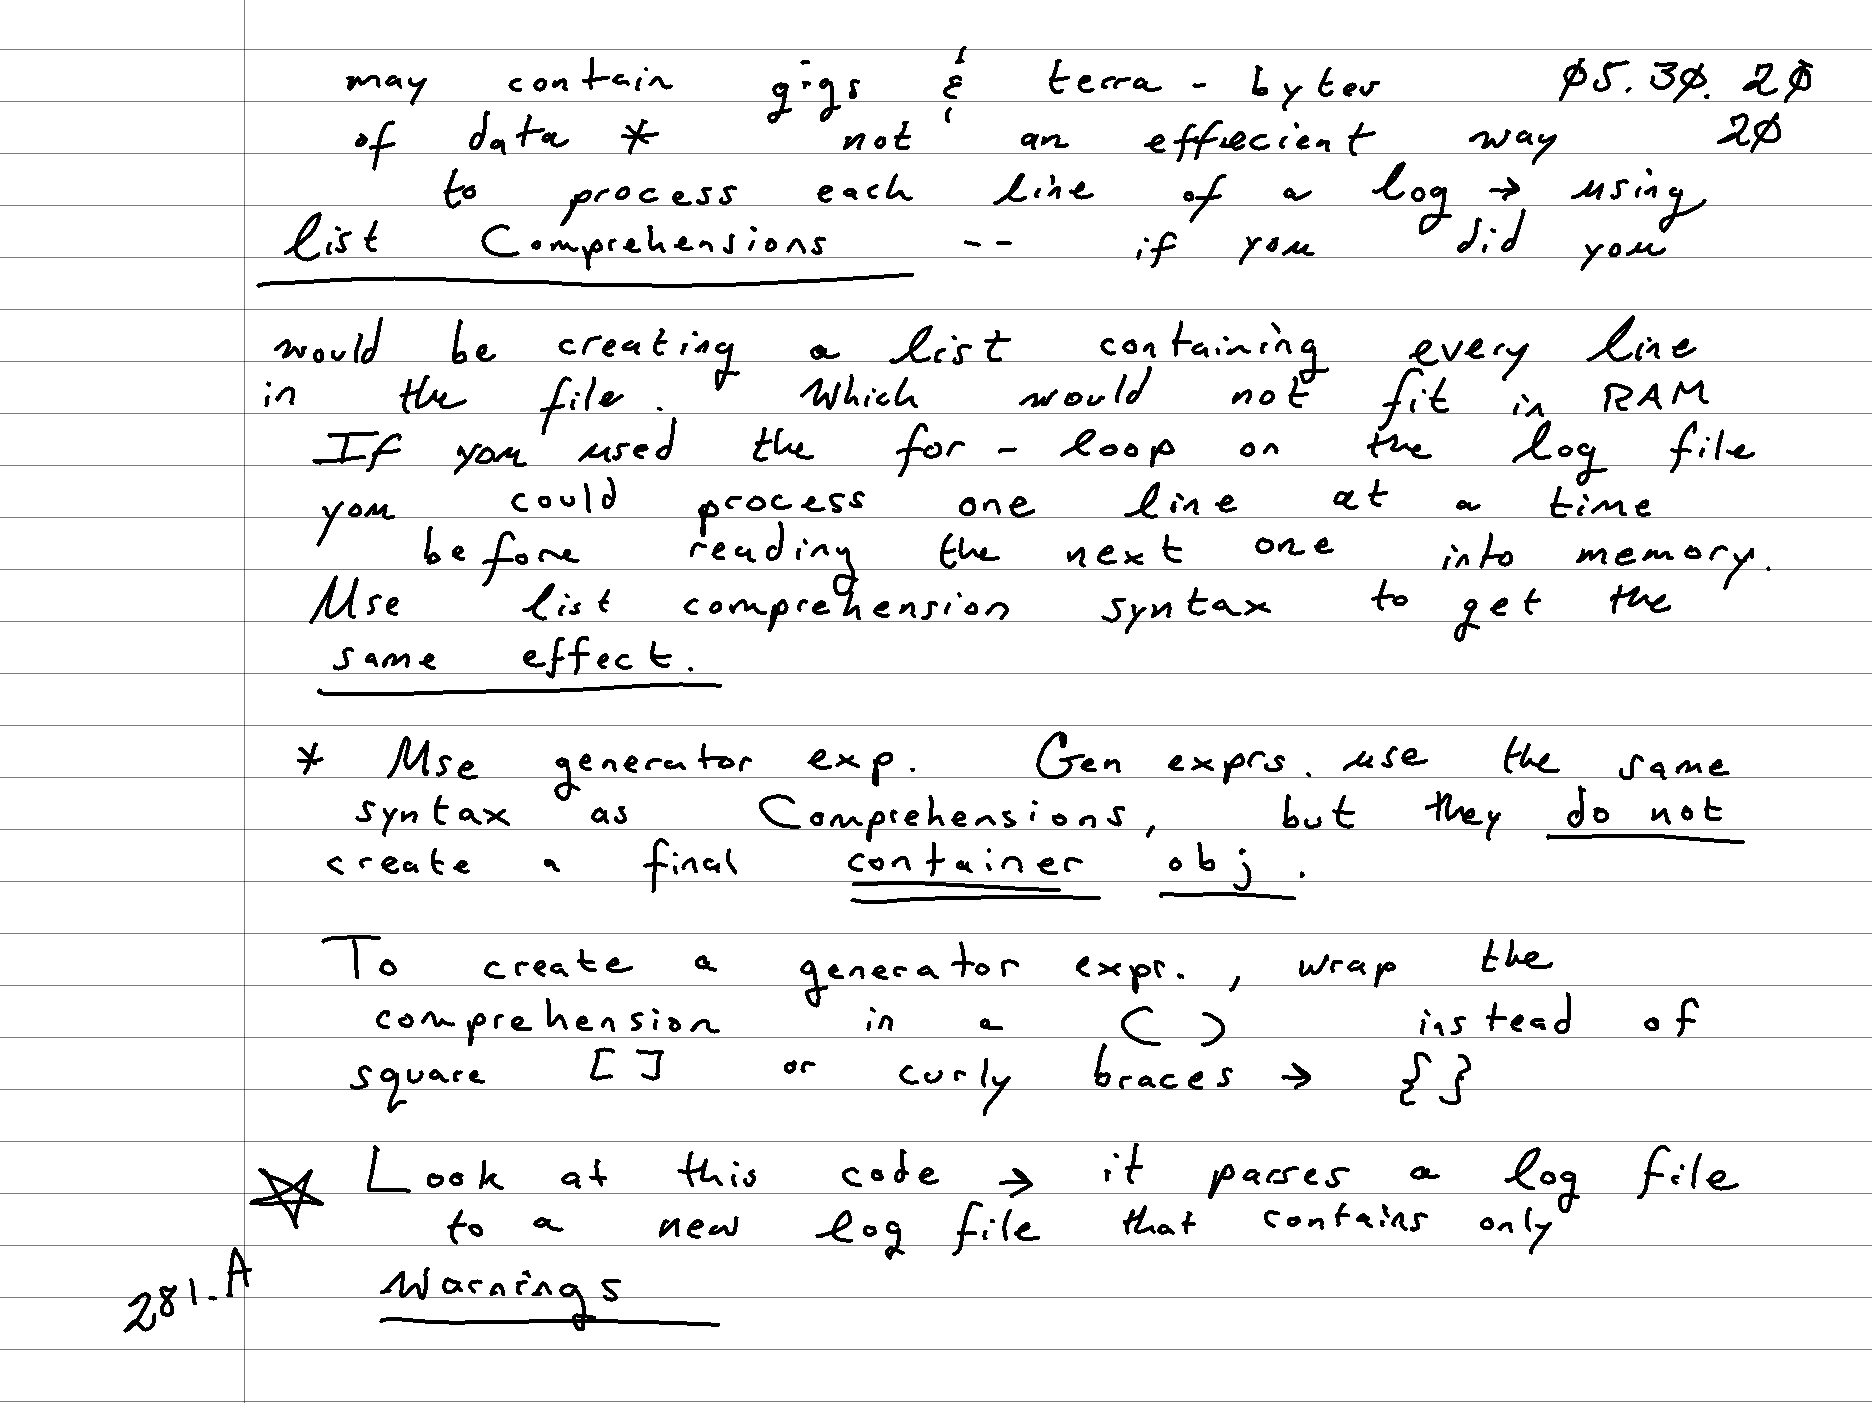 may contain gigs & terra - bytes 05.30.20
of data * not an effecient way 20
to process each line of a log → using
list Comprehensions -- if you did you
would be creating a list containing every line
in the file. Which would not fit in RAM
If you used the for - loop on the log file
you could process one line at a time
before reading the next one into memory.
Use list comprehension syntax to get the
same effect.
* Use generator exp. Gen exprs. use the same
syntax as Comprehensions, but they do not
create a final container obj.
To create a generator expr., wrap the
comprehension in a ( ) instead of
square [ ] or curly braces → { }
☆ Look at this code → it parses a log file
to a new log file that contains only
281-A Warnings